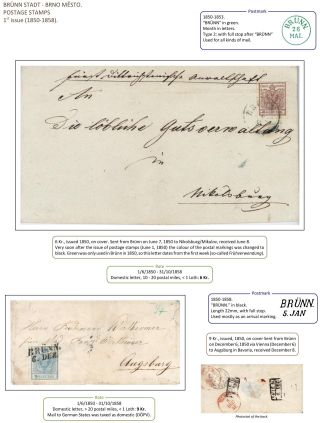 BRÜNN STADT - BRNO MĚSTO.
POSTAGE STAMPS
1st Issue (1850-1858).
Postmark
1850-1853.
"BRÜNN" in green.
Month in letters.
Type 2: with full stop after "BRÜNN"
Used for all kinds of mail.
BRÜNN.
26
MAI.
An
Die löbliche Gutsverwaltung
in
Nikolsburg
6 Kr., issued 1850, on cover sent from Brünn on June 7, 1850 to Nikolsburg/Mikulov, received June 8.
Very soon after the issue of postage stamps (June 1, 1850) the colour of the postal markings was changed to
black. Green was only used in Brünn in 1850, so this letter dates from the first week (so called Frühverwendung).
Rate
1/6/1850 - 31/10/1858
Domestic letter, 10 - 20 postal miles, < 1 Loth: 6 Kr.
Postmark
1850-1858.
"BRÜNN." in black.
Length 22mm, with full stop.
Used mostly as an arrival marking.
BRÜNN.
5. JAN
BRÜNN.
6. DEC
Augsburg
9 Kr., issued 1850, on cover sent from Brünn
on December 6, 1850 via Vienna (December 6)
to Augsburg in Bavaria, received December 8.
Rate
1/6/1850 - 31/10/1858
Domestic letter, > 20 postal miles, < 1 Loth: 9 Kr.
Mail to German States was taxed as domestic (DÖPV).
Photocopy of the back